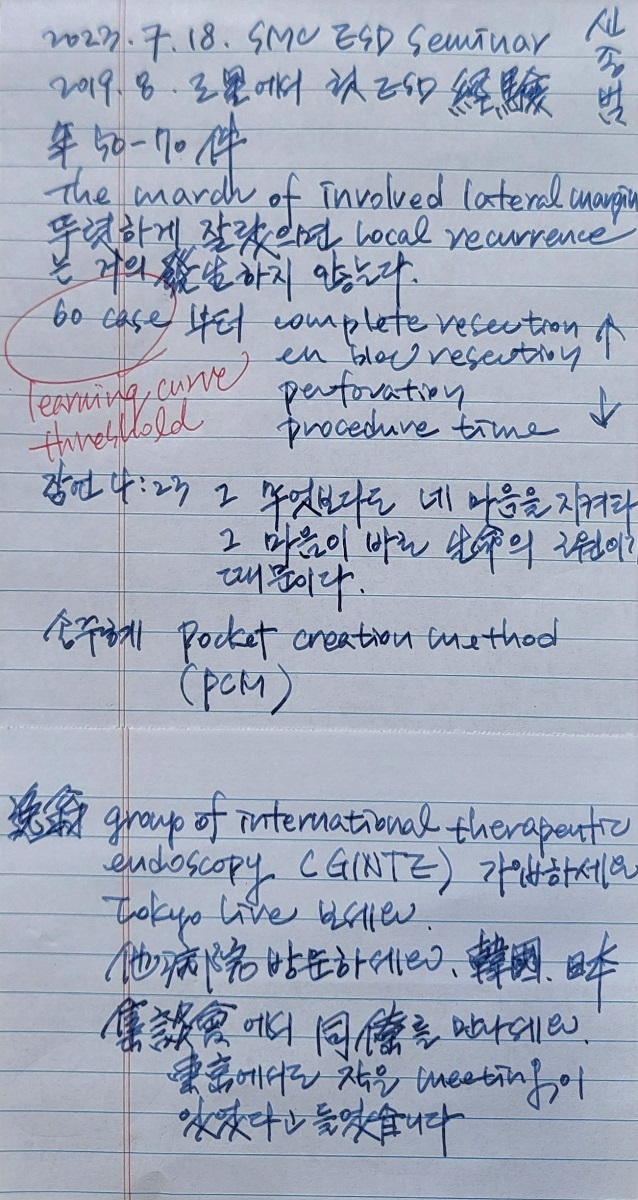 2023. 7. 18. SMC ESD Seminar
신종범
2019. 8. 로부터 첫 ESD 経驗
年 50-70 件
The march of involved lateral margin
뚜렷하게 잘랐으면 local recurrence
는 거의 發生하지 않는다.
60 case 부터 complete resection ↑
en bloc resection
learning curve threshold
perforation
procedure time ↓
잠언 4:23 그 무엇보다도 네 마음을 지켜라
그 마음이 바로 生命의 근원이기
때문이다.
손주희 pocket creation method
(PCM)
group of international therapeutic
endoscopy (GINTE) 가입하세요
Tokyo live 보세요.
他病院 방문하세요. 韓國. 日本
集談會에서 同僚를 만나세요.
東京에서도 작은 meeting이
있었다고 들었습니다